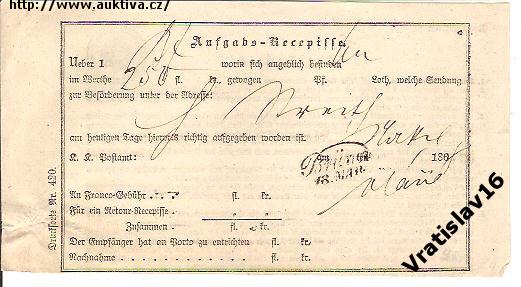 http://www.auktiva.cz/
Aufgabs-Recepisse
Ueber 1 worin sich angeblich befinden
im Werthe 250 fl. kr., gewogen Pf. Loth, welche Sendung
zur Beförderung unter der Adresse:
am heutigen Tage hierorts richtig aufgegeben worden ist.
K. K. Postamt: 186
Brünn
13. MAR.
An Franco-Gebühr . . . fl. kr.
Für ein Retour-Recepisse . „ „
Zusammen . fl. kr.
Der Empfänger hat an Porto zu entrichten fl. kr.
Nachnahme . . . . . . . . . . . . fl. kr.
Drucksorte Nr. 420.
Vratislav16